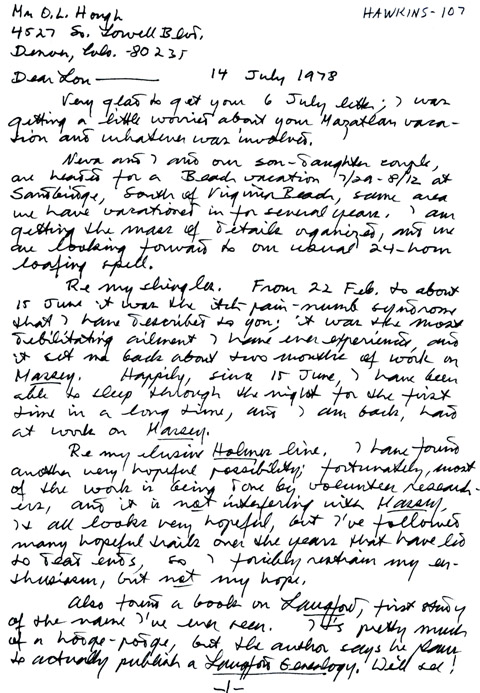 Mr. O.L. Hough
HAWKINS-107
4527 So. Lowell Blvd.
Denver, Colo. -80235
Dear Lon———
14 July 1978
Very glad to get your 6 July letter; I was
getting a little worried about your Mazatlan vaca-
tion and whatever was involved.
Neva and I and our son-daughter couple,
are headed for a Beach vacation 7/29-8/12 at
Sandbridge, South of Virginia Beach, same area
we have vacationed in for several years. I am
getting the mass of details organized, and we
are looking forward to our usual 24-hour
loafing spell.
Re my shingles. From 22 Feb. to about
15 June it was the itch-pain-numb syndrome
that I have described to you; it was the most
debilitating ailment I have ever experienced, and
it set me back about two months of work on
Massey. Happily, since 15 June, I have been
able to sleep through the night for the first
time in a long time, and I am back, hard
at work on Massey.
Re my elusive Holmes line. I have found
another very hopeful possibility; fortunately, most
of the work is being done by volunteer research-
ers, and it is not interfering with Massey.
It all looks very hopeful, but I've followed
many hopeful trails over the years that have led
to dead ends, so I forcibly restrain my en-
thusiasm, but not my hope.
Also found a book on Langford, first study
of the name I've ever seen. It's pretty much
of a hodge-podge, but the author says he plans
to actually publish a Langford Genealogy. We'll see!
-1-